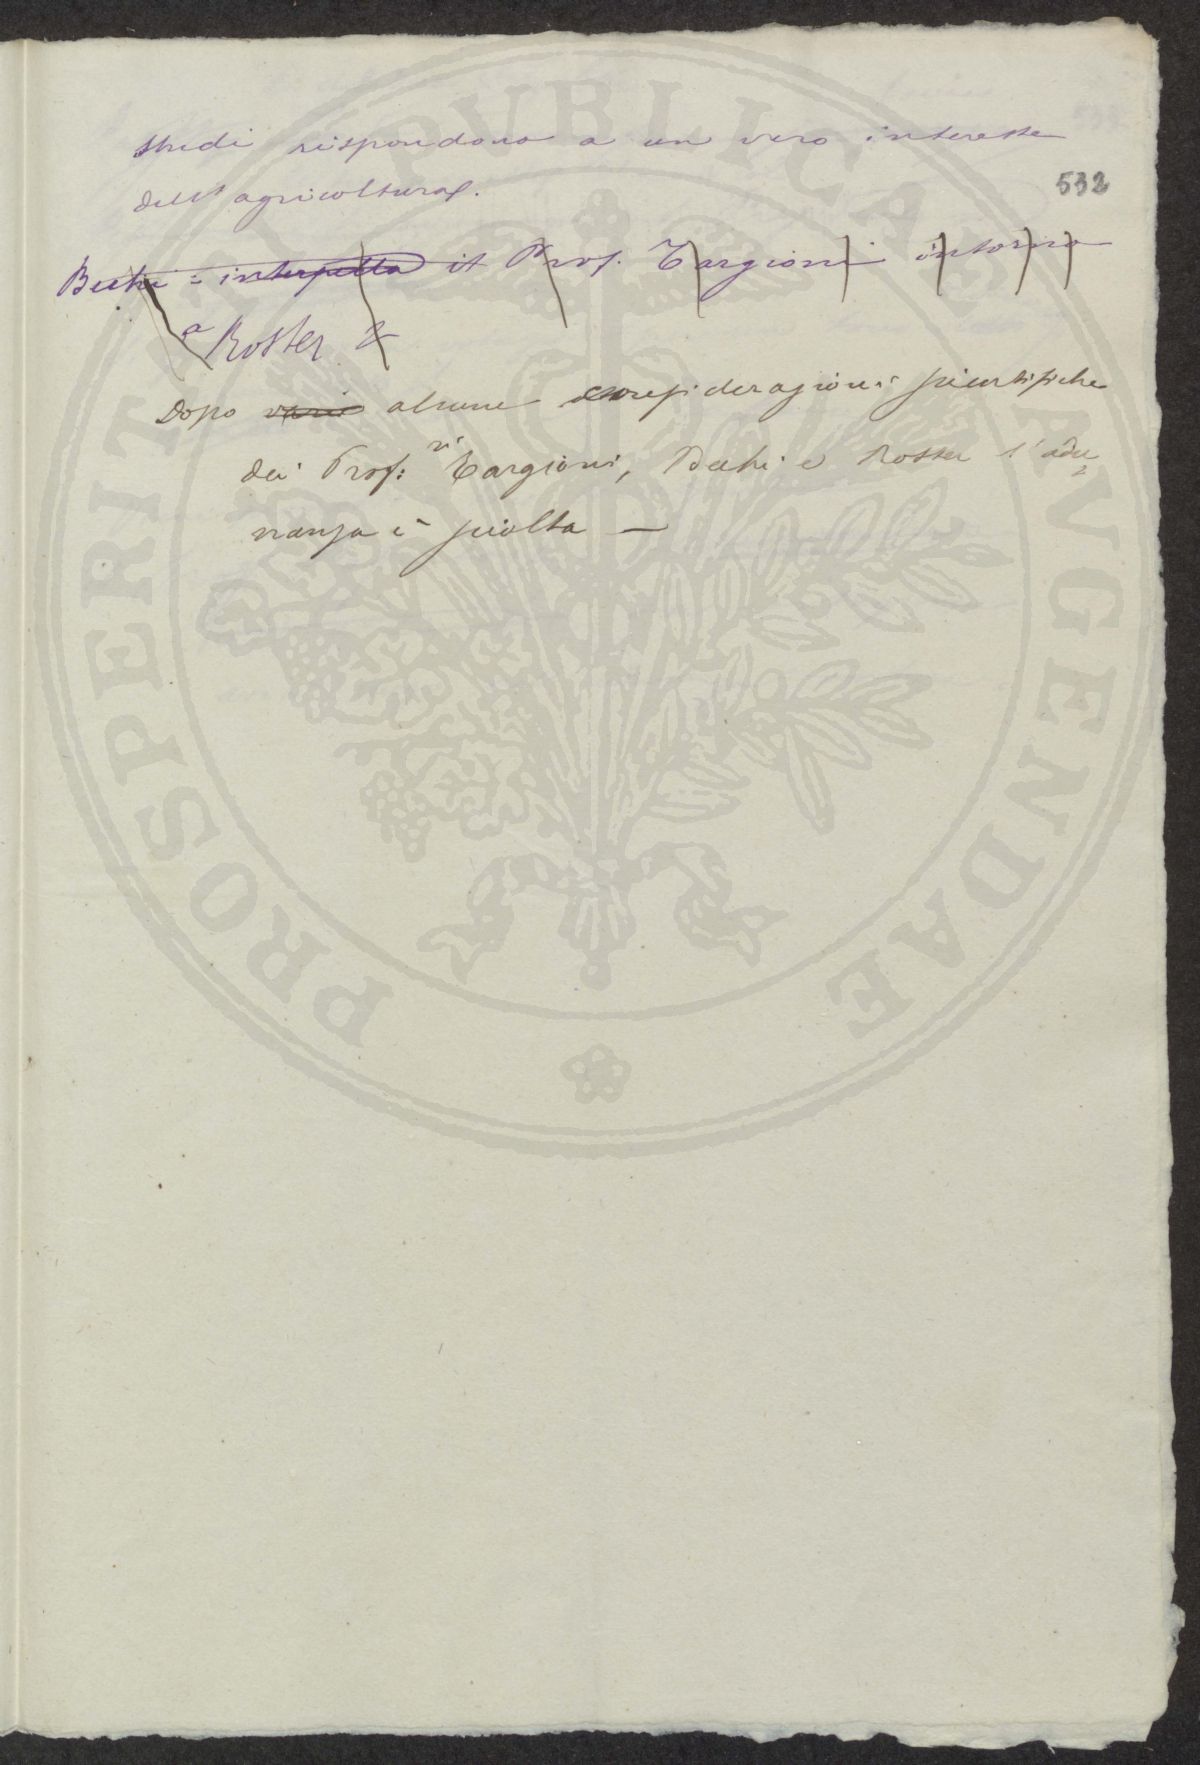 studi rispondono a un vero interesse
dell'agricoltura.
532
Bechi = interpella il Prof. Targioni intorno
a Roster &
Dopo varie alcune considerazioni scientifiche
dei Prof.ri Targioni, Bechi e Roster l'adu=
nanza è sciolta —
PROSPERITATI PVBLICAE AVGENDAE